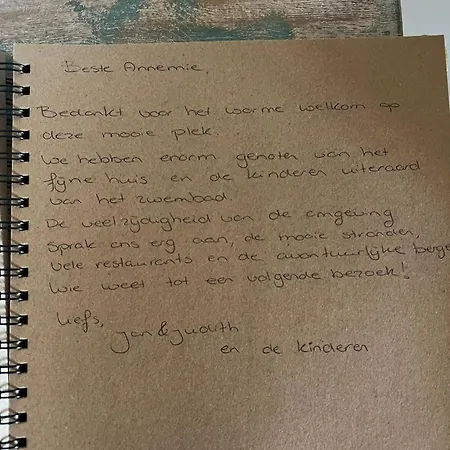 Beste Annemie,
Bedankt voor het warme welkom op
deze mooie plek.
We hebben enorm genoten van het
fijne huis en de kinderen uiteraard
van het zwembad.
De veelzijdigheid van de omgeving
sprak ons erg aan, de mooie stranden,
vele restaurants en de avontuurlijke berge
Wie weet tot een volgende bezoek!
Liefs,
Jan & Judith
en de kinderen